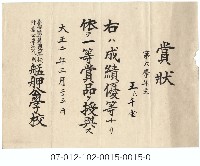 賞狀
第六學年
王六全
右ハ成績優等ナリ
依テ一等賞品ヲ授與ス
大正二年三月三十日
艋舺公學校
07-012-102-0015-0015-0